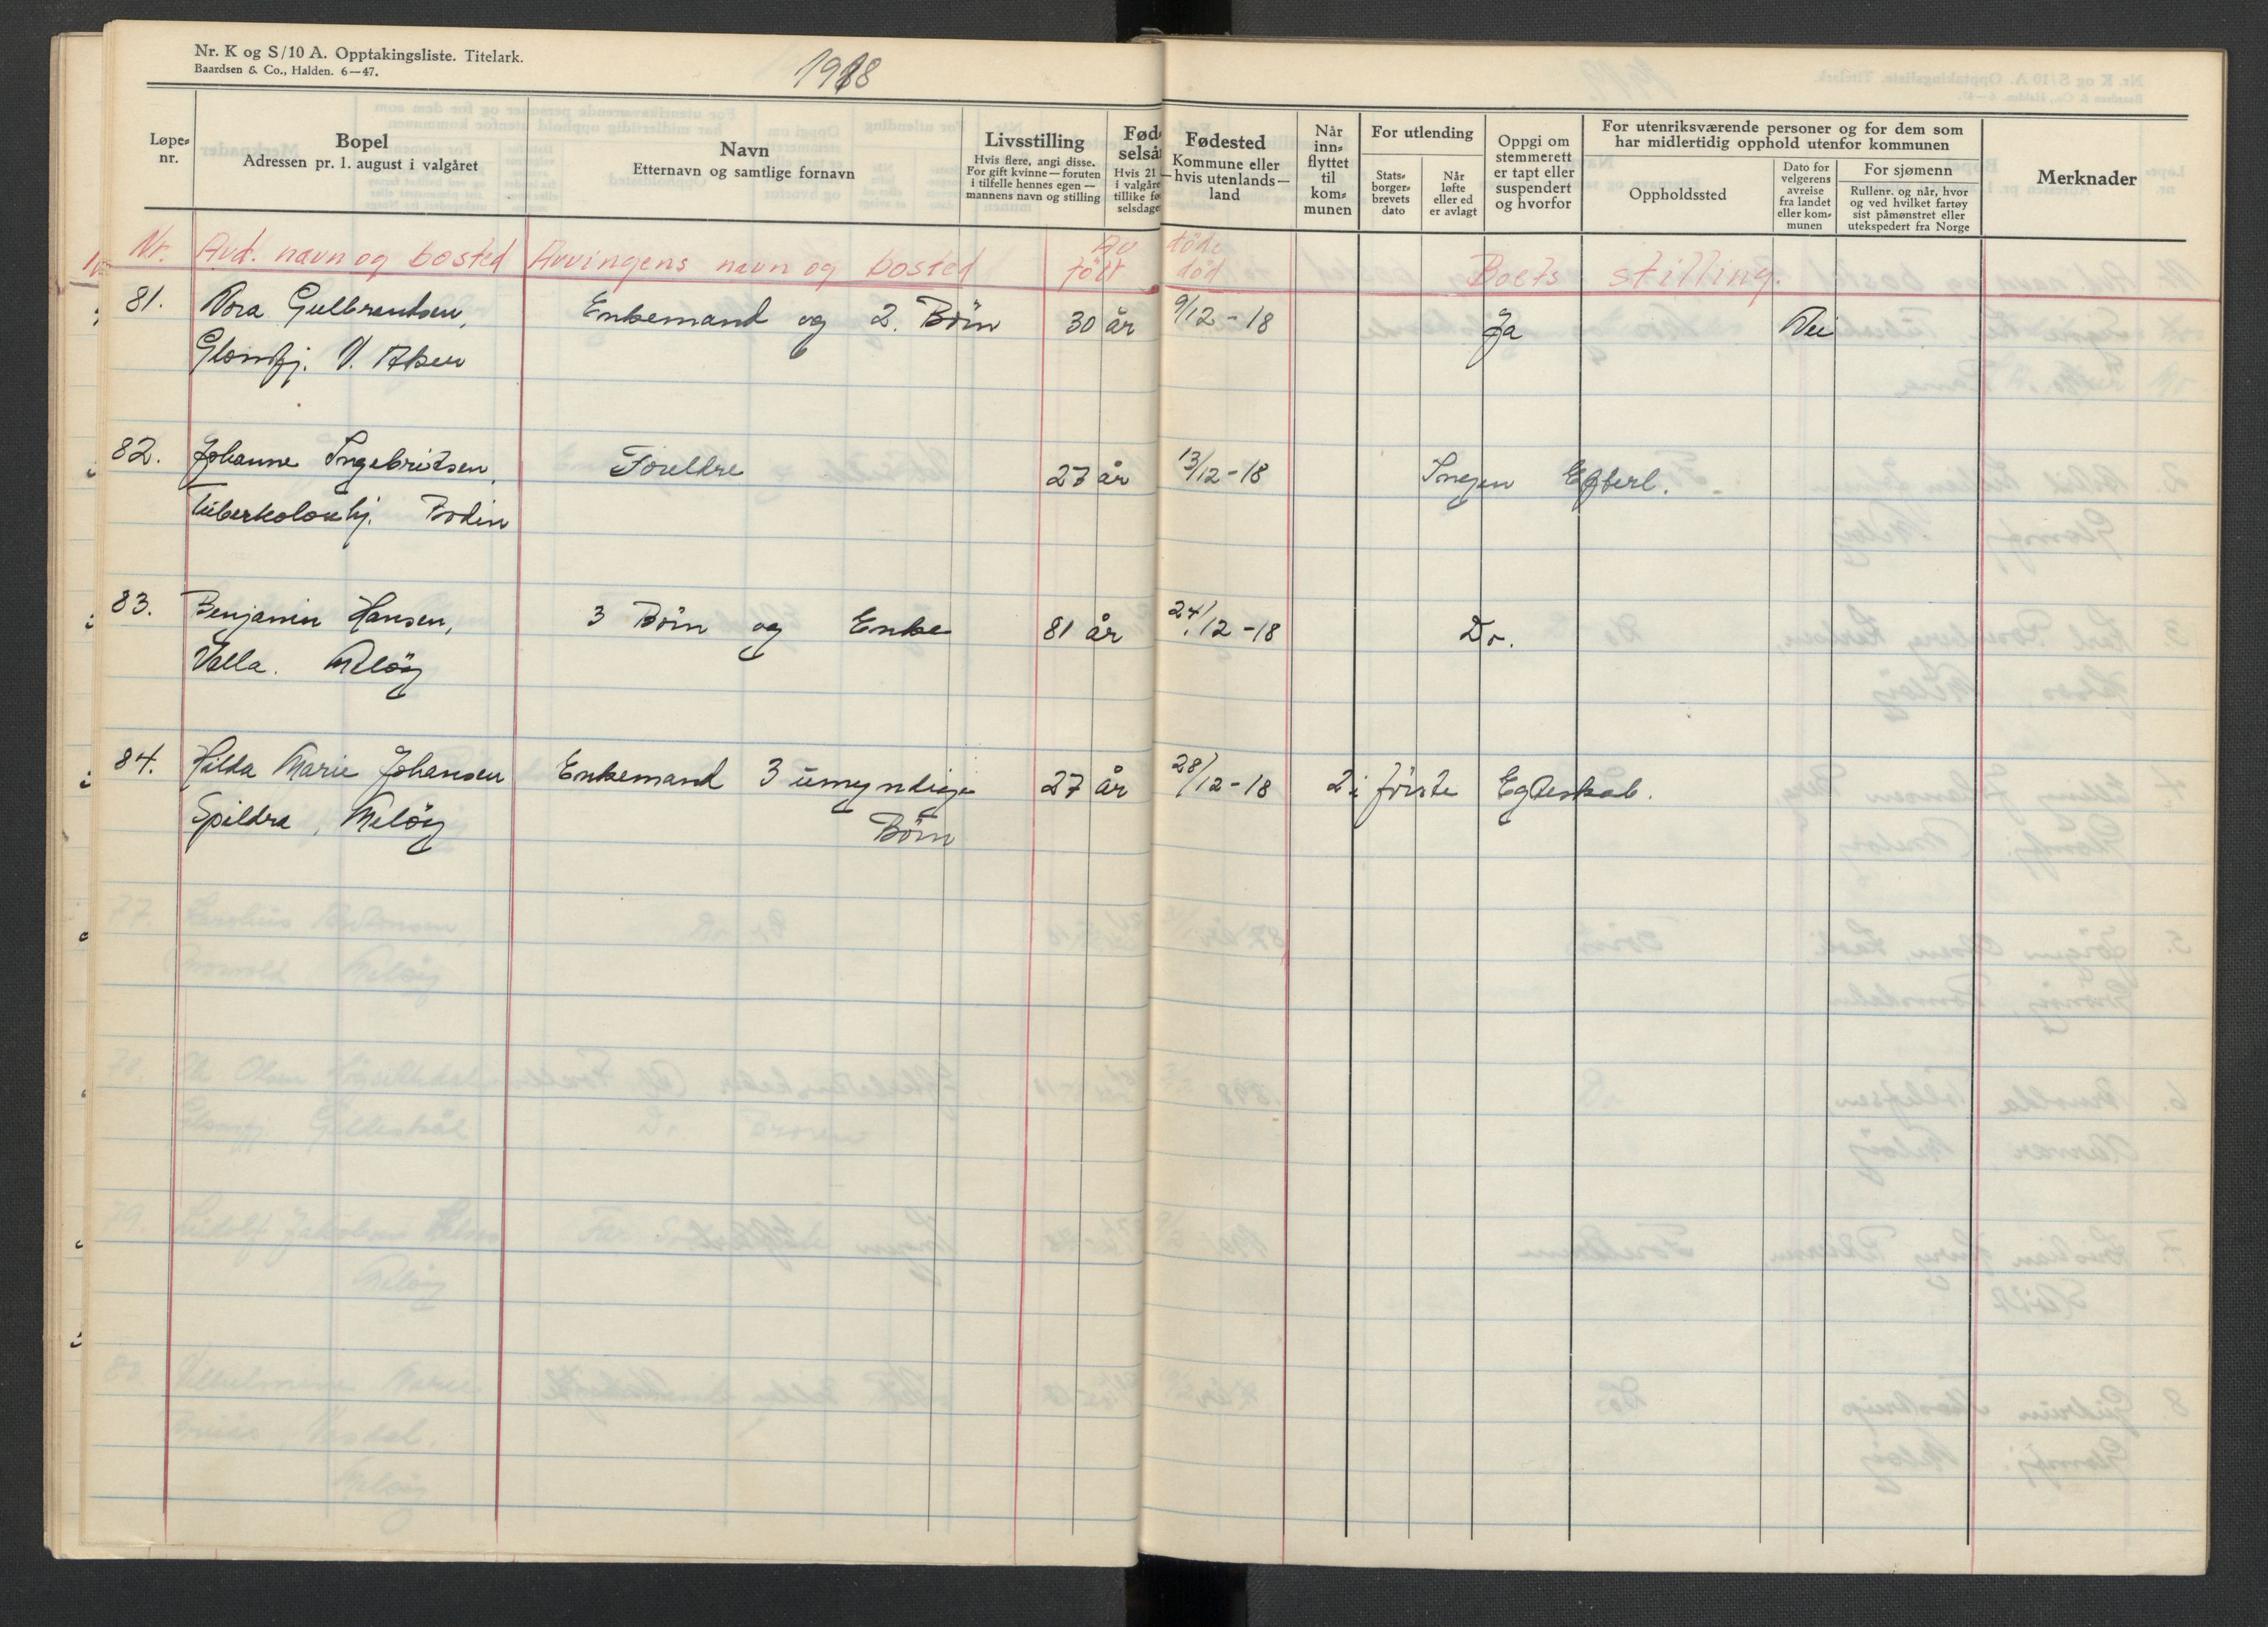 Nr. K og S/10 A. Opptakingsliste. Titelark.
Baardsen & Co., Halden. 6—47.
1918
Løpe-
nr.
Bopel
Adressen pr. 1. august i valgåret
Navn
Etternavn og samtlige fornavn
Livsstilling
Hvis flere, angi disse.
For gift kvinne — foruten
i tilfelle hennes egen —
mannens navn og stilling
Fød
selså
Hvis 21
i valgåre
tillike fø
selsdage
Fødested
Kommune eller
hvis utenlands—
land
Når
inn-
flyttet
til
kom-
munen
For utlending
Stats-
borger-
brevets
dato
Når
løfte
eller ed
er avlagt
Oppgi om
stemmerett
er tapt eller
suspendert
og hvorfor
For utenriksværende personer og for dem som
har midlertidig opphold utenfor kommunen
Oppholdssted
Dato for
velgerens
avreise
fra landet
eller kom-
munen
For sjømenn
Rullenr. og når, hvor
og ved hvilket fartøy
sist påmønstret eller
utekspedert fra Norge
Merknader
Nr. Avd. navn og bosted Arvingens navn og bosted Av døde
født død Boets stilling.
81. Dora Gulbrandsen, Enkemand og 2. Börn 30 år 9/12-18 Ja Nei
Glomfj. V. Aker
82. Johanne Ingebritsen, Foreldre 27 år 13/12-18 Ingen Efterl.
Tuberkolosehj. Bodin
83. Benjamin Hansen, 3 Börn og Enke 81 år 24/12-18 Do.
Valla. Melöy
84. Hilda Marie Johansen Enkemand 3 umyndige 27 år 28/12-18 2 i förste Egteskab.
Spildra, Melöy Börn